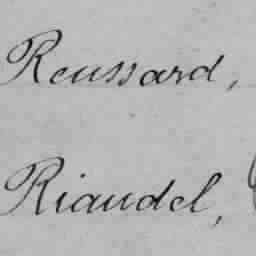 Reussard,
Riaudel,